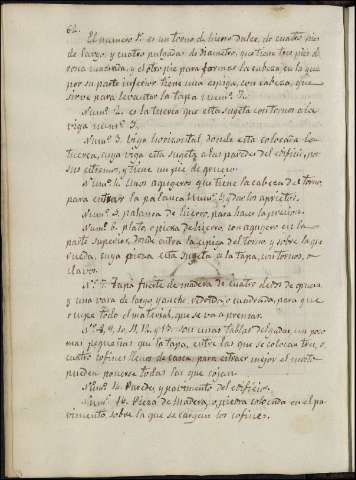 62.
El numero 1º es un torno de hierro dulce, de cuatro pies
de largo, y cuatro pulgadas de diametro, que tiene tres pies de
rosca cuadrada, y el otro pie para formar la cabeza, en la que
por su parte inferior tiene una espiga, con cabeza, que
sirve para levantar la tapa num.º 7.
Num.º 2. es la tuerca que esta sugeta con tornos a la
viga num.º 3.
Num.º 3. viga horizontal, donde está colocada la
tuerca, cuya viga esta sugeta a las paredes del edificio, por
sus estremos, y tiene un pie de grueso.
Num.º 4. unos agugeros que tiene la cabeza del torno,
para entrar la palanca Num.º 5, y dar los aprietos.
Num.º 5. palanca de hierro, para hacer la presion.
Num.º 6. plato, o pieza de hierro, con agugero en la
parte superior, donde entra la espiga del torno y sobre la que
rueda, cuya pieza esta sugeta a la tapa, con tornos, o
clavos.
N.º 7. Tapa fuerte de madera de cuatro dedos de grueso
y una vara de largo y ancho, redonda, o cuadrada, para que
ocupe todo el material, que se va a prensar.
N.º 8, 9, 10, 11, 12, y 13. son unas tablas delgadas un poco
mas pequeñas que la tapa, entre las que se colocan tres, o
cuatro cofines llenos de casca, para estraer mejor el mosto
pueden ponerse todas las que cojan.
Num.º 14. Paredes y pavimento del edificio.
Num.º 15. Pieza de Madera, o, piedra colocada en el pa-
vimento, sobre la que se cargan los cofines.